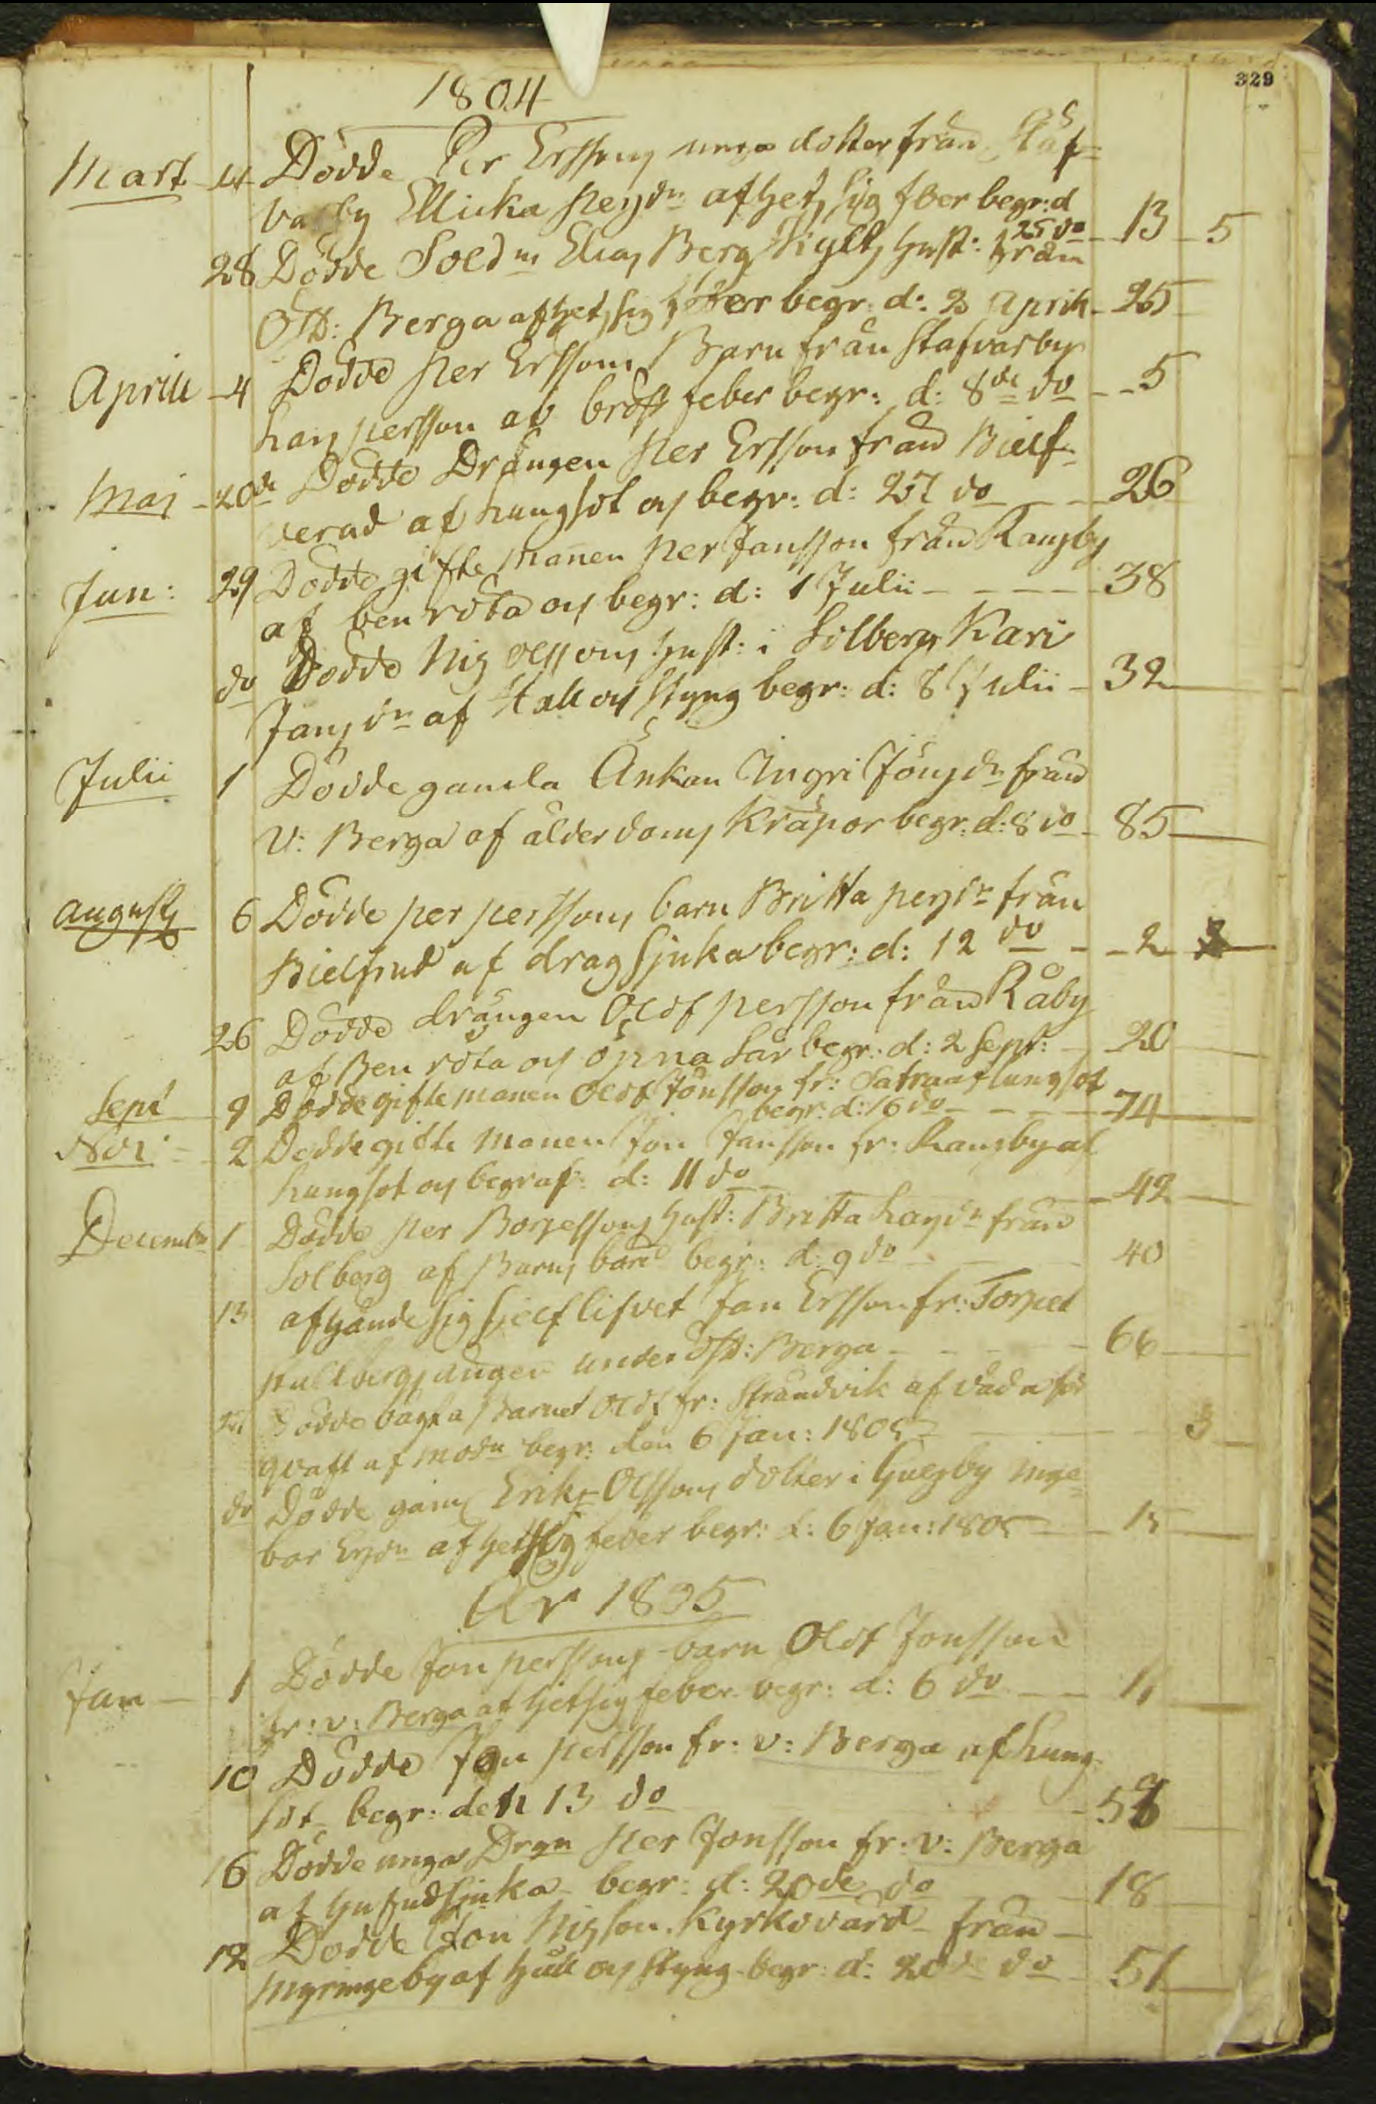 329
1804
Mart 14 Dödde Per Erssons unga dotter från Staf=
varby Ellicka Persdr: af hetsig feber begr: d 25 do 13 5
28 Dödde Sold:n Elias Berg hust: från
Öst: Berga af hetsig feber begr: d: 2 Aprill 25
Aprill 4 Dödde Per Erssons Barn från Stafvarby
Lars Persson af bröst feber begr: d: 8de do 5
Maj 20de Dödde Drängen Per Ersson från Bielf=
verud af lungsot och begr: d: 27 do 26
Jun: 29 Dödde gifte manen Per Jansson från Ransby
af ben röta och begr: d: 1 Julii 38
do Dödde Nils Olssons hust: i Solberg Kari
Jansdr af Håll och styng begr: d: 8 Julii 32
Julii 1 Dödde gamla Änkan Ingri Jönsdr från
V: Berga af ålderdoms krämpor begr: d: 8 do 85
Augusti 6 Dödde per perssons barn Britta persdr från
Bielfrud af dragsjuka begr: d: 12 do 2
26 Dödde drängen Olof persson från Råby
af Ben röta och öpna sår begr: d: 2 Sept: 20
Sept 9 Dödde gifte manen Olof Jönsson fr: Satraaf lungsot
begr: d: 16 do 74
Nov: 2 Dödde gifte manen Jon Jansson fr: Ransby af
lungsot och begraf: d: 11 do 42
Decembr 1 Dödde Per Börjessons hust: Britta Larsdr från
Solberg af Barns börd begr: d: 9 do 40
13 afhände sig sielf lifvet Jan Ersson fr: Torpet
under öst: Berga 66
Dödde Barnet Olof fr: Strandvik af våda för
qvaft af modn begr: den 6 Jan: 1805 3
do Dödde Erik Olssons dotter i Gilsby Inge=
bor Ersdr af hetsig feber begr: d: 6 Jan: 1805 15
År 1805
Jan 1 Dödde Jon perssons barn Olof Jonsson
fr: v: Berga af hetsig feber begr: d: 6 do 11
10 Dödde Jon persson fr: v: Berga af lung
sot begr: den 13 do 58
16 Dödde unga Drgn Per Jonsson fr: v: Berga
af hufudsjuka begr: d: 20de do 18
12 Dödde Jon Nilsson Kyrkovärd från
Myringeby af håll och styng begr: d: 20de do 51